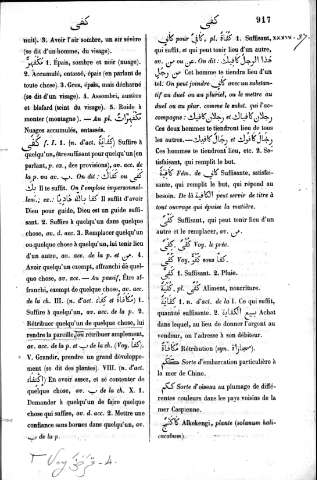 كفى كفى 917
noir). 3. Avoir l'air sombre, un air sévère
(se dit d'un homme, du visage).
1. Épais, sombre et noir (nuage).
2. Accumulé, entassé, épais (en parlant de
toute chose). 3. Gros, épais, mais décharné
(se dit d'un visage). 4. Assombri, austère
et blafard (teint du visage). 5. Roide à
monter (montagne). — Au pl.
Nuages accumulés, entassés.
كفى f. I. 1. (n. d'act. كفاية) Suffire à
quelqu'un, être suffisant pour quelqu'un (en
parlant, p. ex., des provisions), av. acc. de
la p. ou av. ب. On dit :
Il te suffit. On l'emploie impersonnel-
lement, ex.: كفى بالله هاديا Il suffit d'avoir
Dieu pour guide, Dieu est un guide suffi-
sant. 2. Suffire à quelqu'un dans quelque
chose, av. d. acc. 3. Remplacer quelqu'un
ou quelque chose à quelqu'un, lui tenir lieu
d'un autre, av. acc. de la p. et من. 4.
Avoir quelqu'un exempt, affranchi dà quel-
que chose, av. acc. — Au passif, Être af-
franchi, exempt de quelque chose, av. acc.
de la ch. III. (n. d'act. مكافاة) 1.
Suffire à quelqu'un, av. acc. de la p. 2.
Rétribuer quelqu'un de quelque chose, lui
rendre la pareille, ou rétribuer amplement,
av. acc. de la p. et ب de la ch. (Voy. كفأ).
V. Grandir, prendre un grand développe-
ment (se dit des plantes). VIII. (n. d'act.
اكتفاء) En avoir assez, et se contenter
de quelque chose, av. ب de la ch. X. 1.
Demander à quelqu'un de faire quelque
chose qui suffise, av. d. acc. 2. Mettre une
confiance sans bornes dans quelqu'un, av.
ب de la p.
كاف pour كافي, pl. كفاة 1. Suffisant,
qui suffit, et qui peut tenir lieu d'un autre,
av. من ou عن. On dit : هذا الرجل كافيك
Cet homme te tiendra lieu d'un tel
On peut joindre كافي avec ce sub-
stantif au duel ou au pluriel, ou le mettre au
duel ou au plur. comme le subst. qui l'ac-
compagne :
Ces deux hommes te tiendront lieu de tous
les autres. —
Ces hommes te tiendront lieu, etc. 2. Sa-
tisfaisant, qui remplit le but.
كافية Fém. de كافي Suffisante, satisfai-
sante, qui remplit le but, qui répond au
besoin. De là الكافية peut servir de titre à
tout ouvrage qui épuise la matière.
كفى Suffisant, qui peut tenir lieu d'un
autre et le remplacer, av. من.
Voy. le préc.
Voy. كفأ sous
1. Suffisant. 2. Pluie.
كفية, pl. كفى Aliment, nourriture.
كفاية 1. n. d'act. de la I. Ce qui suffit,
quantité suffisante. 2. بيع الكفاية Achat
dans lequel, au lieu de donner l'argent au
vendeur, on l'adresse à son débiteur.
مكافاة Rétribution (syn. مجازاة).
Sorte d'embarcation particulière à
la mer de Chine.
Sorte d'oiseau au plumage de diffé-
rentes couleurs dans les pays voisins de la
mer Caspienne.
Alkekengi, plante (solanum hali-
cacabum).